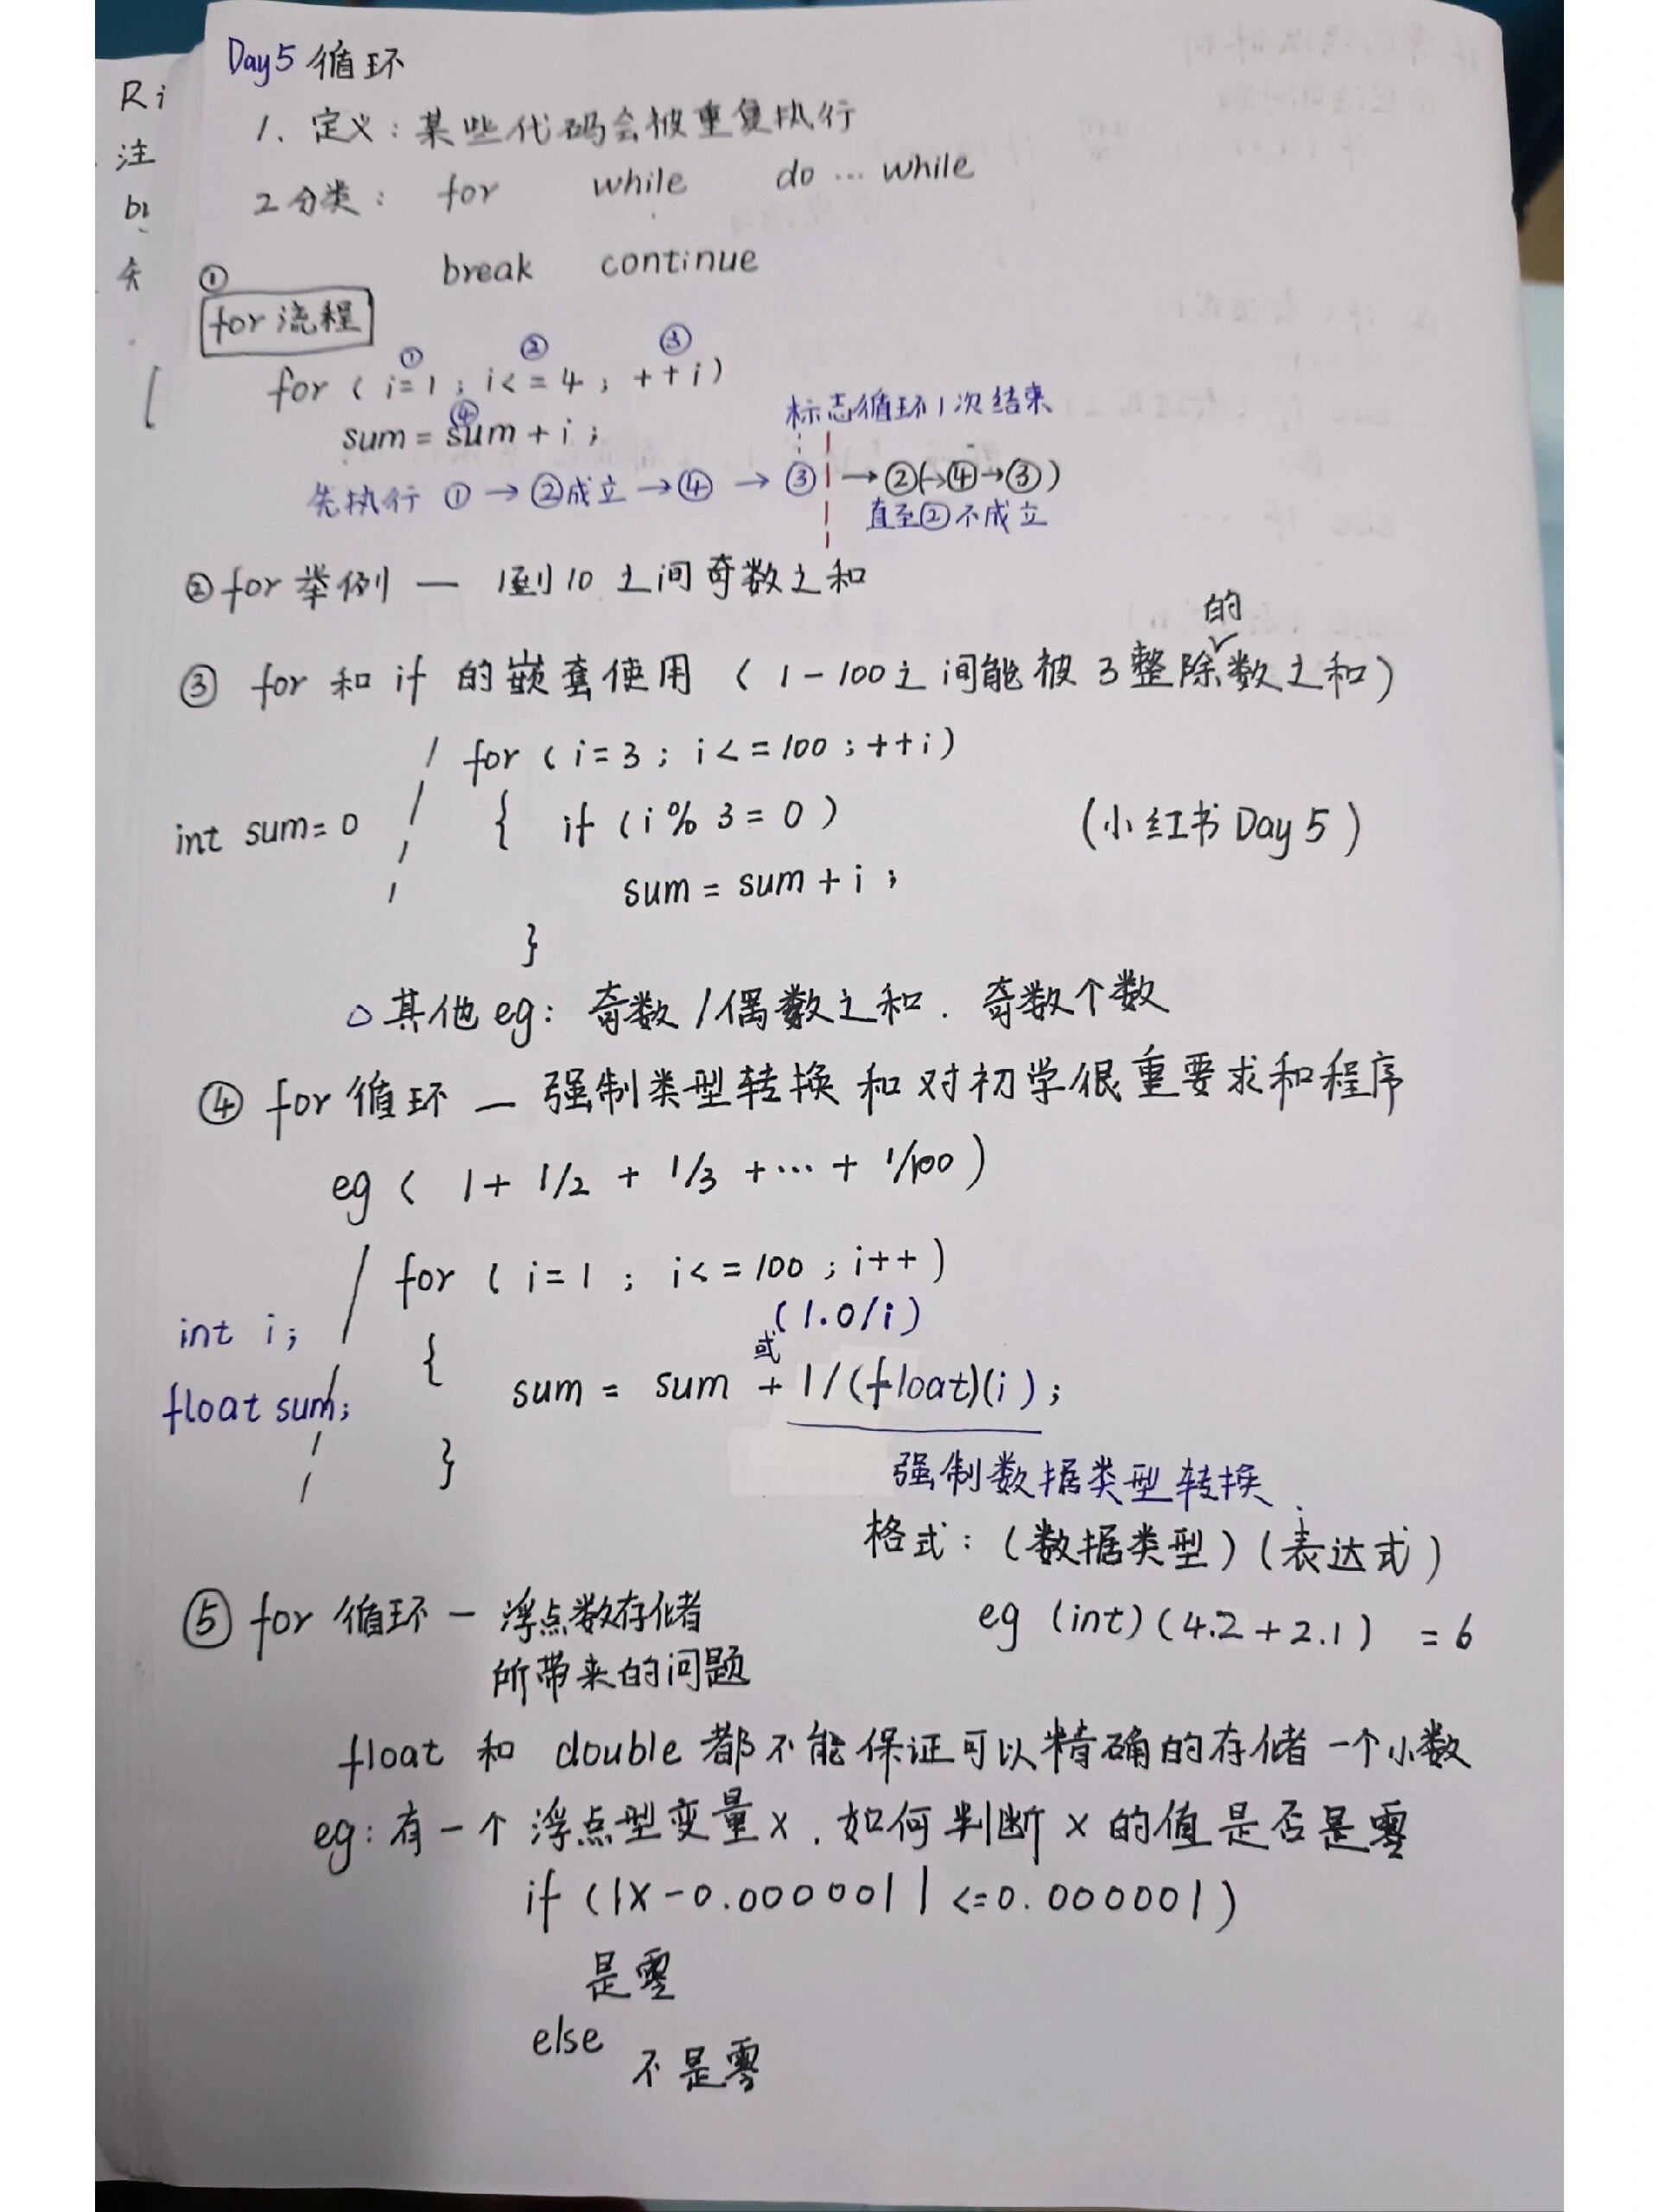 Day5 循环
1、定义：某些代码会被重复执行
2 分类： for while do … while
break continue
①
for 流程
① ② ③
for ( i=1 ; i<=4 ; ++i )
④
sum = sum + i ;
标志循环1次结束
先执行 ① → ②成立 → ④ → ③ → ②(→④→③)
直至②不成立
② for 举例 — 1到10之间奇数之和
③ for 和 if 的嵌套使用 ( 1-100之间能被3整除的数之和 )
for ( i=3 ; i<=100 ; ++i )
int sum=0
{ if ( i % 3 = 0 )
(小红书 Day 5 )
sum = sum + i ;
}
△其他eg：奇数/偶数之和．奇数个数
④ for 循环 — 强制类型转换 和 对初学很重要求和程序
eg ( 1 + 1/2 + 1/3 + … + 1/100 )
for ( i=1 ; i<=100 ; i++ )
int i;
float sum;
{
或 (1.0/i)
sum = sum + 1/(float)(i) ;
}
强制数据类型转换
格式：(数据类型)(表达式)
eg (int)(4.2+2.1) = 6
⑤ for 循环 — 浮点数存储
所带来的问题
float 和 double 都不能保证可以精确的存储一个小数
eg：有一个浮点型变量x．如何判断x的值是否是零
if (|x-0.000001| <=0.000001)
是零
else
不是零
Ri
注